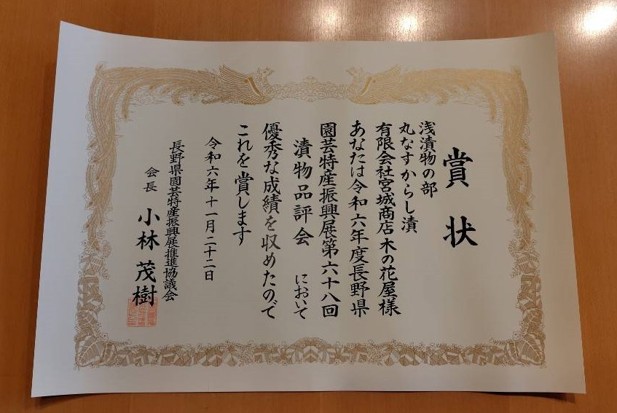 賞状
浅漬物の部
丸なすからし漬
有限会社宮城商店木の花屋様
あなたは令和六年度長野県
園芸特産振興展第六十八回
漬物品評会において
優秀な成績を収めたので
これを賞します
令和六年十一月二十二日
長野県園芸特産振興展推進協議会
会長 小林茂樹